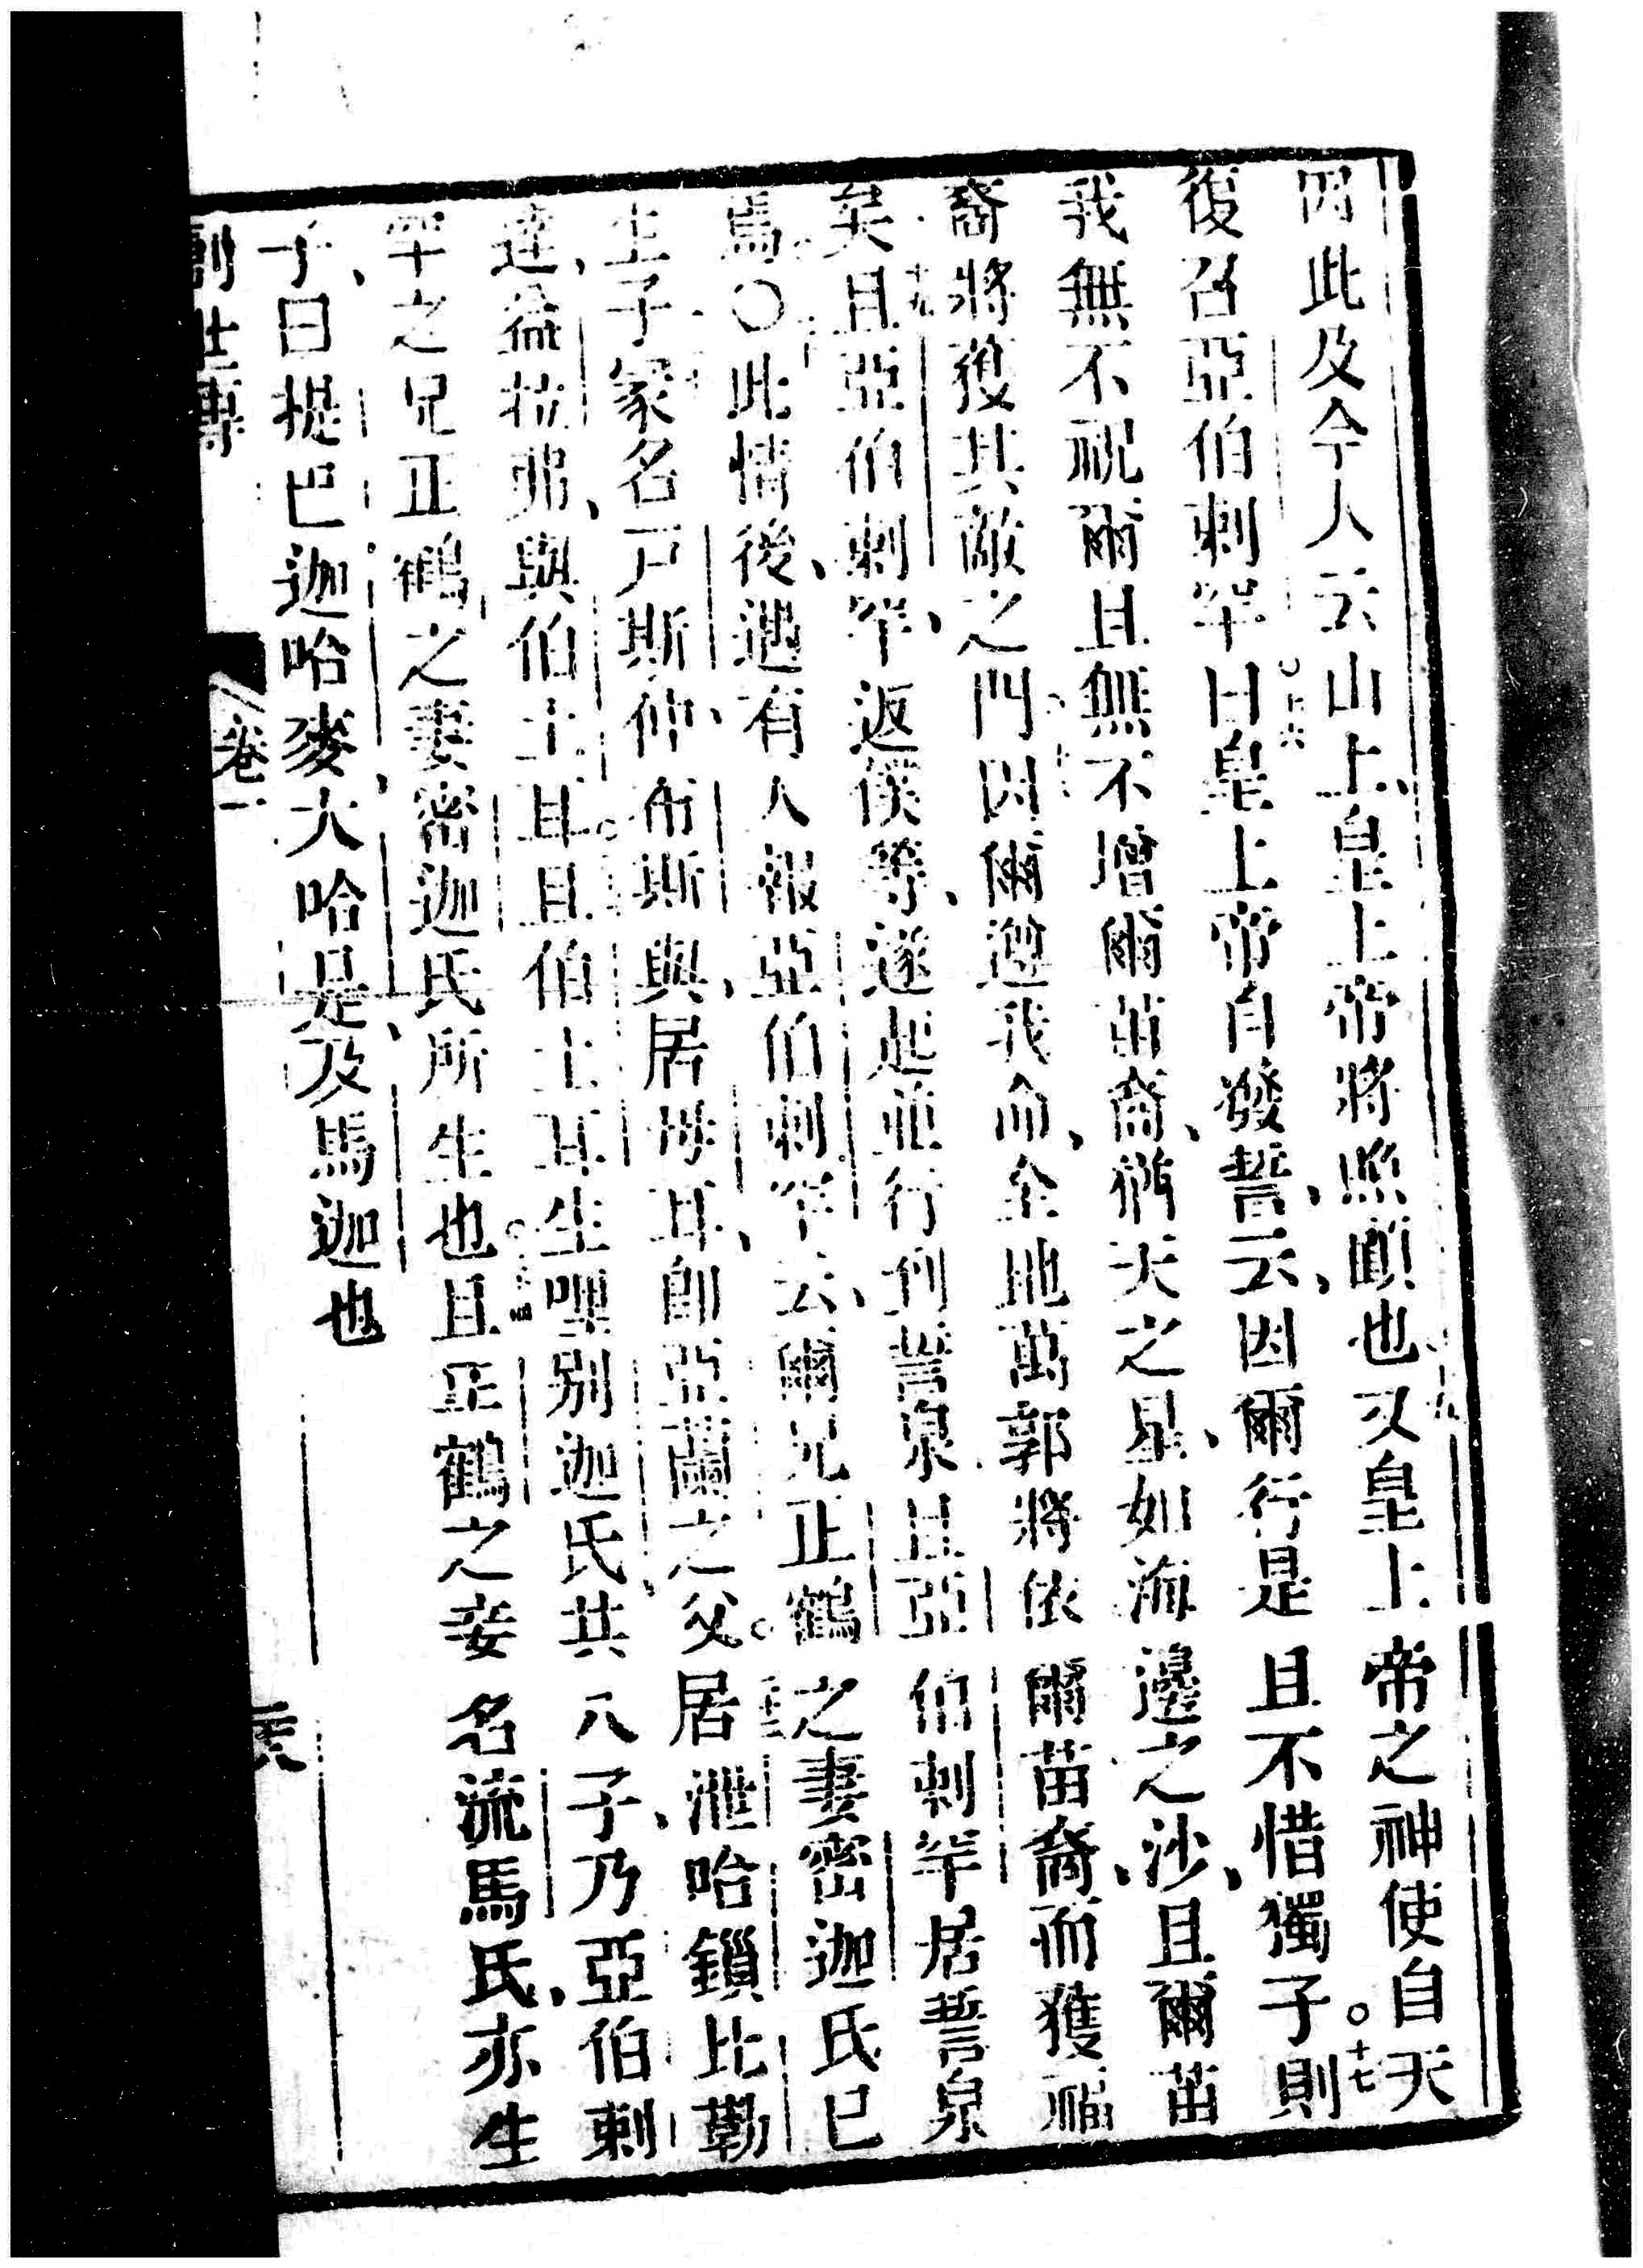 因此及今人云山上、皇上帝將照顧也又皇上帝之神使自天
復召亞伯剌罕曰皇上帝自發誓、云、因爾行是且不惜獨子則
我無不祝爾且無不增爾苗裔、猶天之星、如海邊之沙、且爾苗
裔將獲其敵之門因爾遵我命、全地萬郭將依爾苗裔、而獲福
矣且亞伯剌罕、返僕等、遂起並行到誓泉且亞伯剌罕居誓泉
焉。○此情後、遇有人報亞伯剌罕云、爾兄正鶴之妻密迦氏已
生子冢名戶斯仲、布斯與、居母耳、即亞蘭之父。居泄哈鎖比勒
達、益拉弗、與伯土耳。且伯土耳生哩別迦氏、共八子、乃亞伯剌
罕之兄正鶴之妻密迦氏所生也。且正鶴之妾名流馬氏、亦生
子、曰提巴迦哈麥、大哈是、及馬迦也
創世傳 卷一